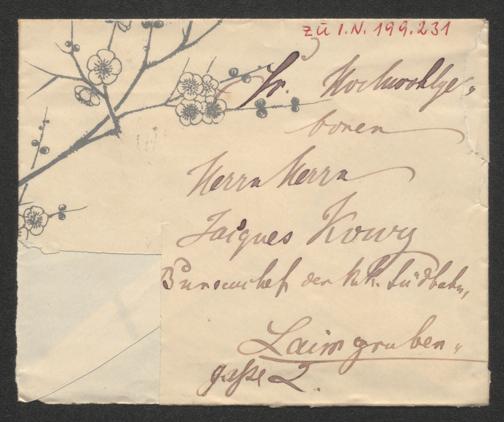 zu I.N. 199.231
Sr. Hochwohlge„
boren
Herrn Herrn
Jacques Kowy
Bureauchef der k.k. Südbahn,
Laimgruben„
gasse 2.